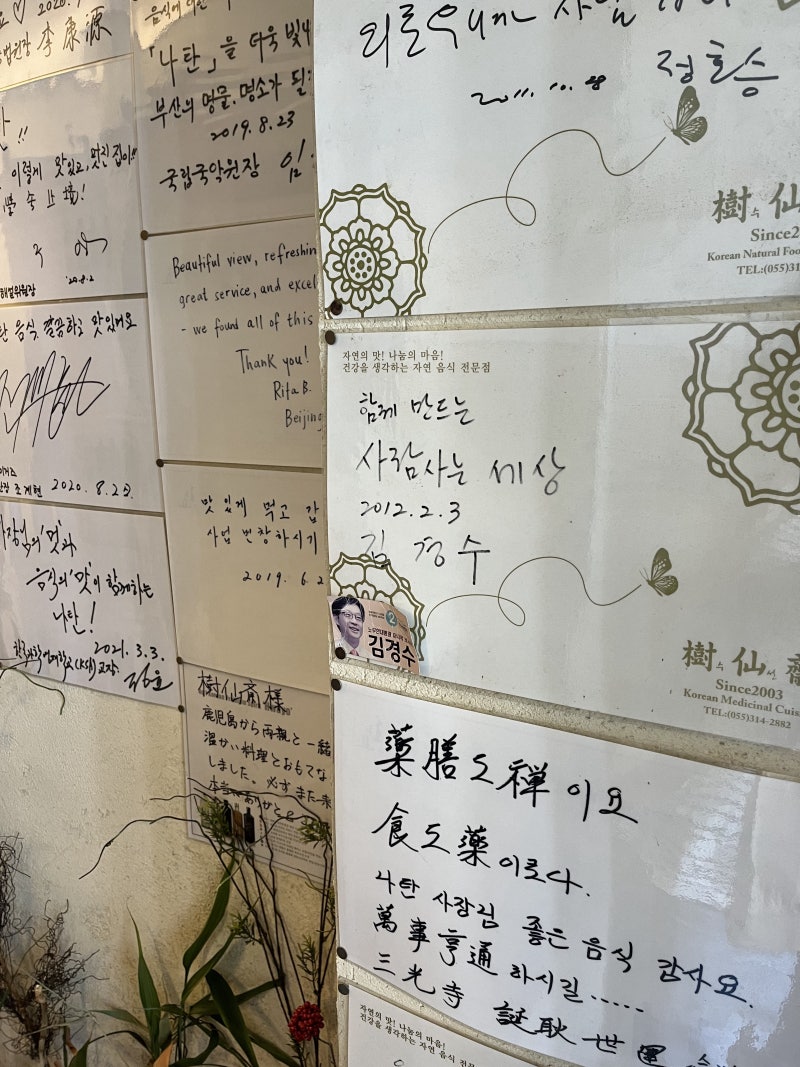 2020.
李康源
「나탄」을 더욱 빛나
부산의 명물, 명소가 되
2019. 8. 23
국립국악원장 임
이렇게 맛있고, 멋진 집이!!
'20.8.2
음식 깔끔하고 맛있어요
조계현 2020. 8. 23.
사장님의 '멋'과
음식의 '맛'이 함께하는
나탄!
2021. 3. 3.
Beautiful view, refreshin
great service, and excel
- we found all of this
Thank you!
Rita B.
Beijing
맛있게 먹고 갑
사업 번창하시기
2019. 6. 2
樹仙斎様
鹿児島から両親と一緒
温かい料理とおもてな
しました。必ずまた来
本当にありがとう
외로우니까 사람
2011. 10. 28
정호승
樹수仙
Since2
Korean Natural Foo
TEL:(055)31
자연의 맛! 나눔의 마음!
건강을 생각하는 자연 음식 전문점
함께 만드는
사람사는 세상
2012. 2. 3
김경수
2
김경수
樹수仙선齋
Since2003
Korean Medicinal Cuis
TEL:(055)314-2882
藥膳도 禪이요
食도 藥이로다.
나탄 사장님 좋은 음식 감사요.
萬事亨通 하시길.....
三光寺
자연의 맛! 나눔의 마음!
건강을 생각하는 자연 음식 전문